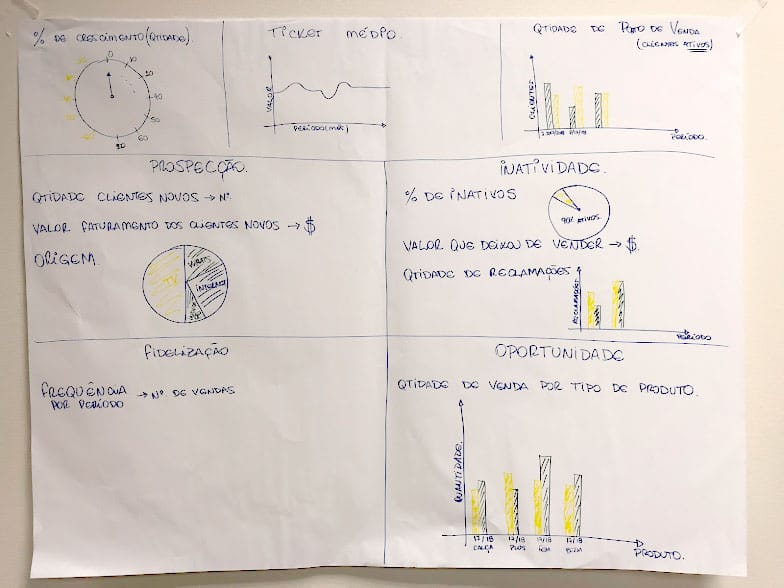 % DE CRESCIMENTO (QTIDADE)
0
10
20
40
60
TICKET MÉDIO
VALOR
PERÍODO (MÊS)
QTIDADE DE PONTO DE VENDA
(CLIENTES ATIVOS)
CLIENTES
PERÍODO.
PROSPECÇÃO.
QTIDADE CLIENTES NOVOS → Nº
VALOR FATURAMENTO DOS CLIENTES NOVOS → $
ORIGEM.
TV
WHATS
INTERNET
INATIVIDADE.
% DE INATIVOS
90% ATIVOS
VALOR QUE DEIXOU DE VENDER → $.
QTIDADE DE RECLAMAÇÕES
RECLAMAÇÕES
PERÍODO
FIDELIZAÇÃO
FREQUÊNCIA
POR PERÍODO → Nº DE VENDAS
OPORTUNIDADE
QTIDADE DE VENDA POR TIPO DE PRODUTO.
QUANTIDADE.
17/18 17/18 17/18 17/18
CALÇA
PRODUTO.